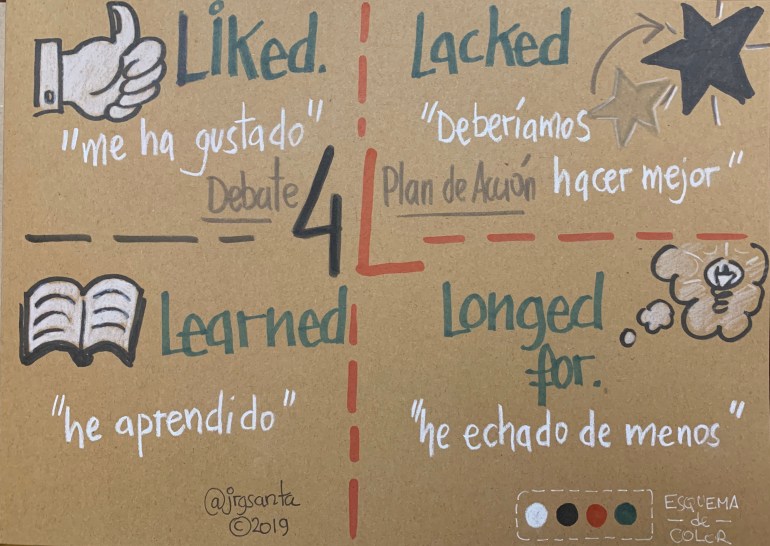 Liked.
"me ha gustado"
Debate
Lacked
"Deberíamos
hacer mejor"
Plan de Acción
4L
Learned
"he aprendido"
Longed
for.
"he echado de menos"
@jrgsanta
©2019
ESQUEMA
de
COLOR